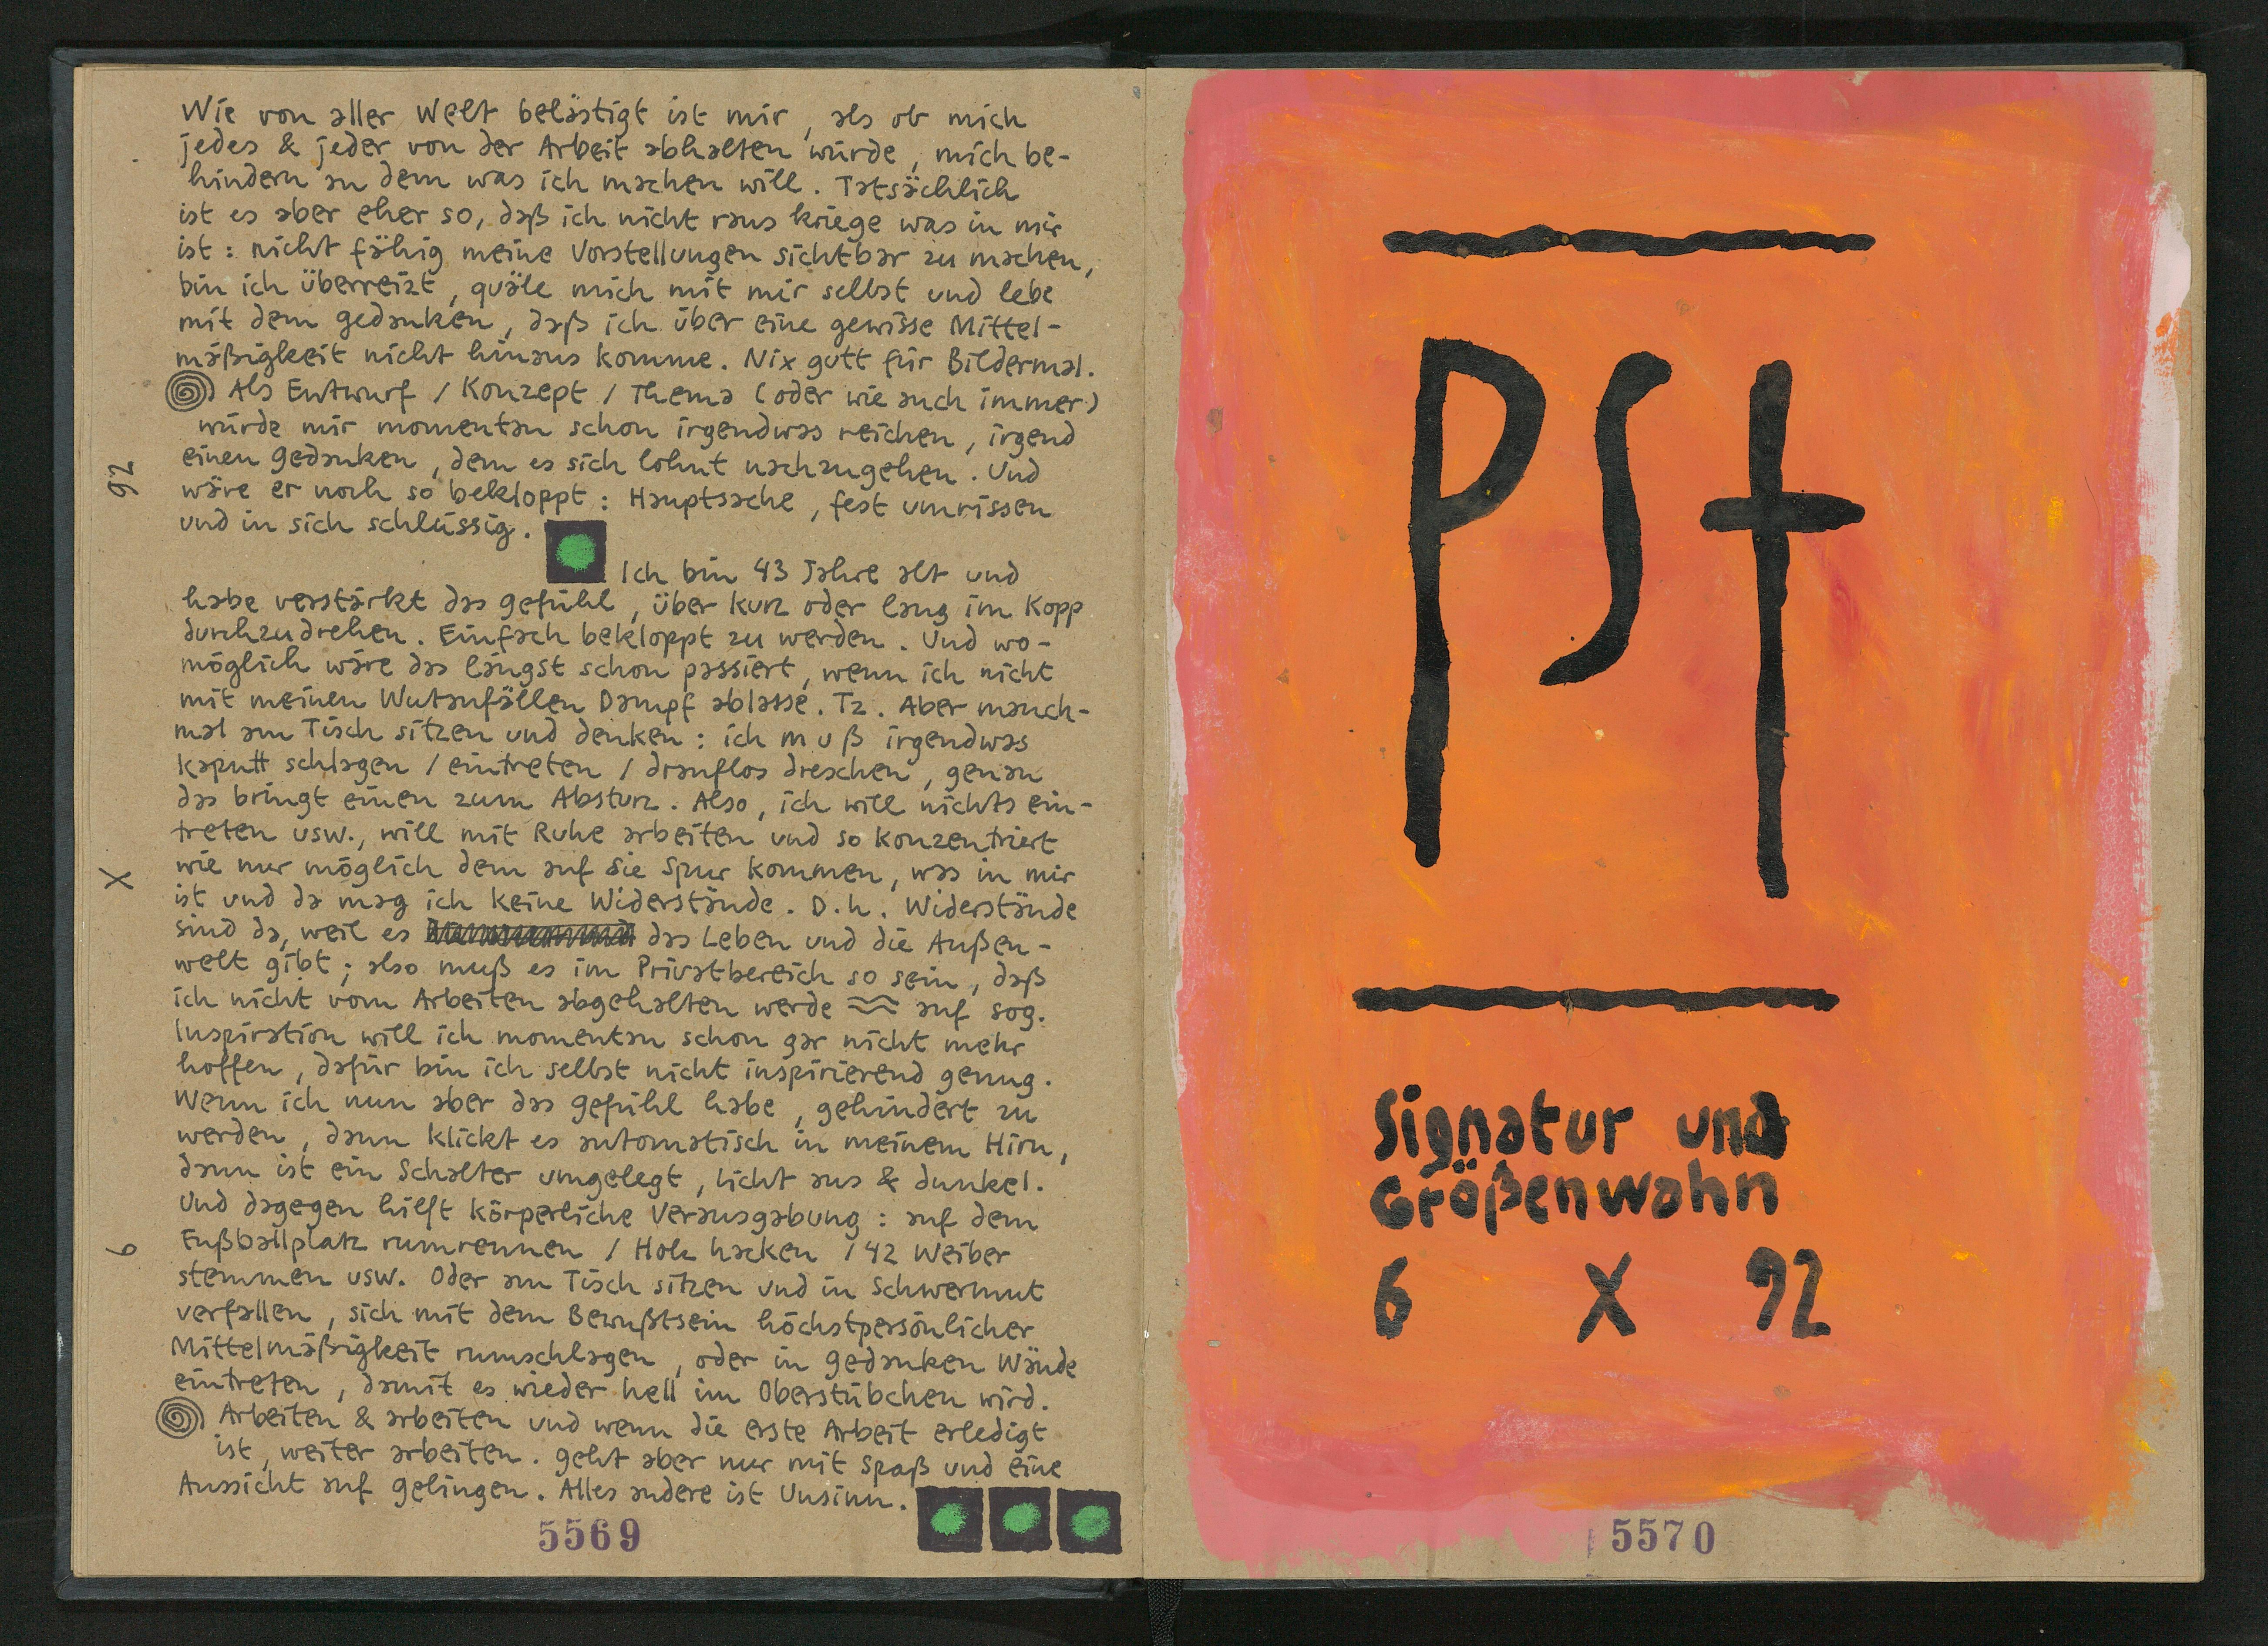 Wie von aller Welt belästigt ist mir, als ob mich
jedes & jeder von der Arbeit abhalten würde, mich be-
hindern an dem was ich machen will. Tatsächlich
ist es aber eher so, daß ich nicht raus kriege was in mir
ist: nicht fähig meine Vorstellungen sichtbar zu machen,
bin ich überreizt, quäle mich mit mir selbst und lebe
mit dem gedanken, daß ich über eine gewisse Mittel-
mäßigkeit nicht hinaus komme. Nix gutt für Bildermal.
Als Entwurf / Konzept / Thema (oder wie auch immer)
würde mir momentan schon irgendwas reichen, irgend
einen gedanken, dem es sich lohnt nachzugehen. Und
wäre er noch so bekloppt: Hauptsache, fest umrissen
und in sich schlüssig.
Ich bin 43 Jahre alt und
habe verstärkt das gefühl, über kurz oder lang im Kopp
durchzudrehen. Einfach bekloppt zu werden. Und wo-
möglich wäre das längst schon passiert, wenn ich nicht
mit meinen Wutanfällen Dampf ablasse. Tz. Aber manch-
mal am Tisch sitzen und denken: ich m u ß irgendwas
kaputt schlagen / eintreten / drauflos dreschen, genau
das bringt einen zum Absturz. Also, ich will nichts ein-
treten usw., will mit Ruhe arbeiten und so konzentriert
wie nur möglich dem auf die Spur kommen, was in mir
ist und da mag ich keine Widerstände. D.h. Widerstände
sind da, weil es das Leben und die Außen-
welt gibt; also muß es im Privatbereich so sein, daß
ich nicht vom Arbeiten abgehalten werde ≈ auf sog.
Inspiration will ich momentan schon gar nicht mehr
hoffen, dafür bin ich selbst nicht inspirierend genug.
Wenn ich nun aber das gefühl habe, gehindert zu
werden, dann klickt es automatisch in meinem Hirn,
dann ist ein Schalter umgelegt, licht aus & dunkel.
Und dagegen hilft körperliche Verausgabung: auf dem
Fußballplatz rumrennen / Holz hacken / 42 Weiber
stemmen usw. Oder am Tisch sitzen und in Schwermut
verfallen, sich mit dem Bewußtsein höchstpersönlicher
Mittelmäßigkeit rumschlagen, oder in gedanken Wände
eintreten, damit es wieder hell im Oberstübchen wird.
Arbeiten & arbeiten und wenn die erste Arbeit erledigt
ist, weiter arbeiten. geht aber nur mit Spaß und eine
Aussicht auf gelingen. Alles andere ist Unsinn.
6 X 92
5569
PSt
Signatur und
Größenwahn
6 X 92
5570